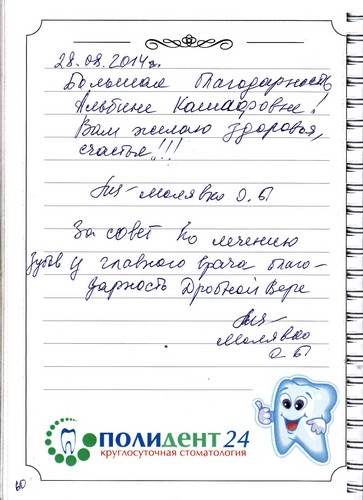 28.08.2014г.
Большая благодарность
Альбине Кашафовне!
Вам желаю здоровья,
счастья!!!
Молявко О.
За совет по лечению
зубов у главного врача благо-
дарность Дробной Вере
Молявко
О.
ПОЛИДЕНТ 24
круглосуточная стоматология
60